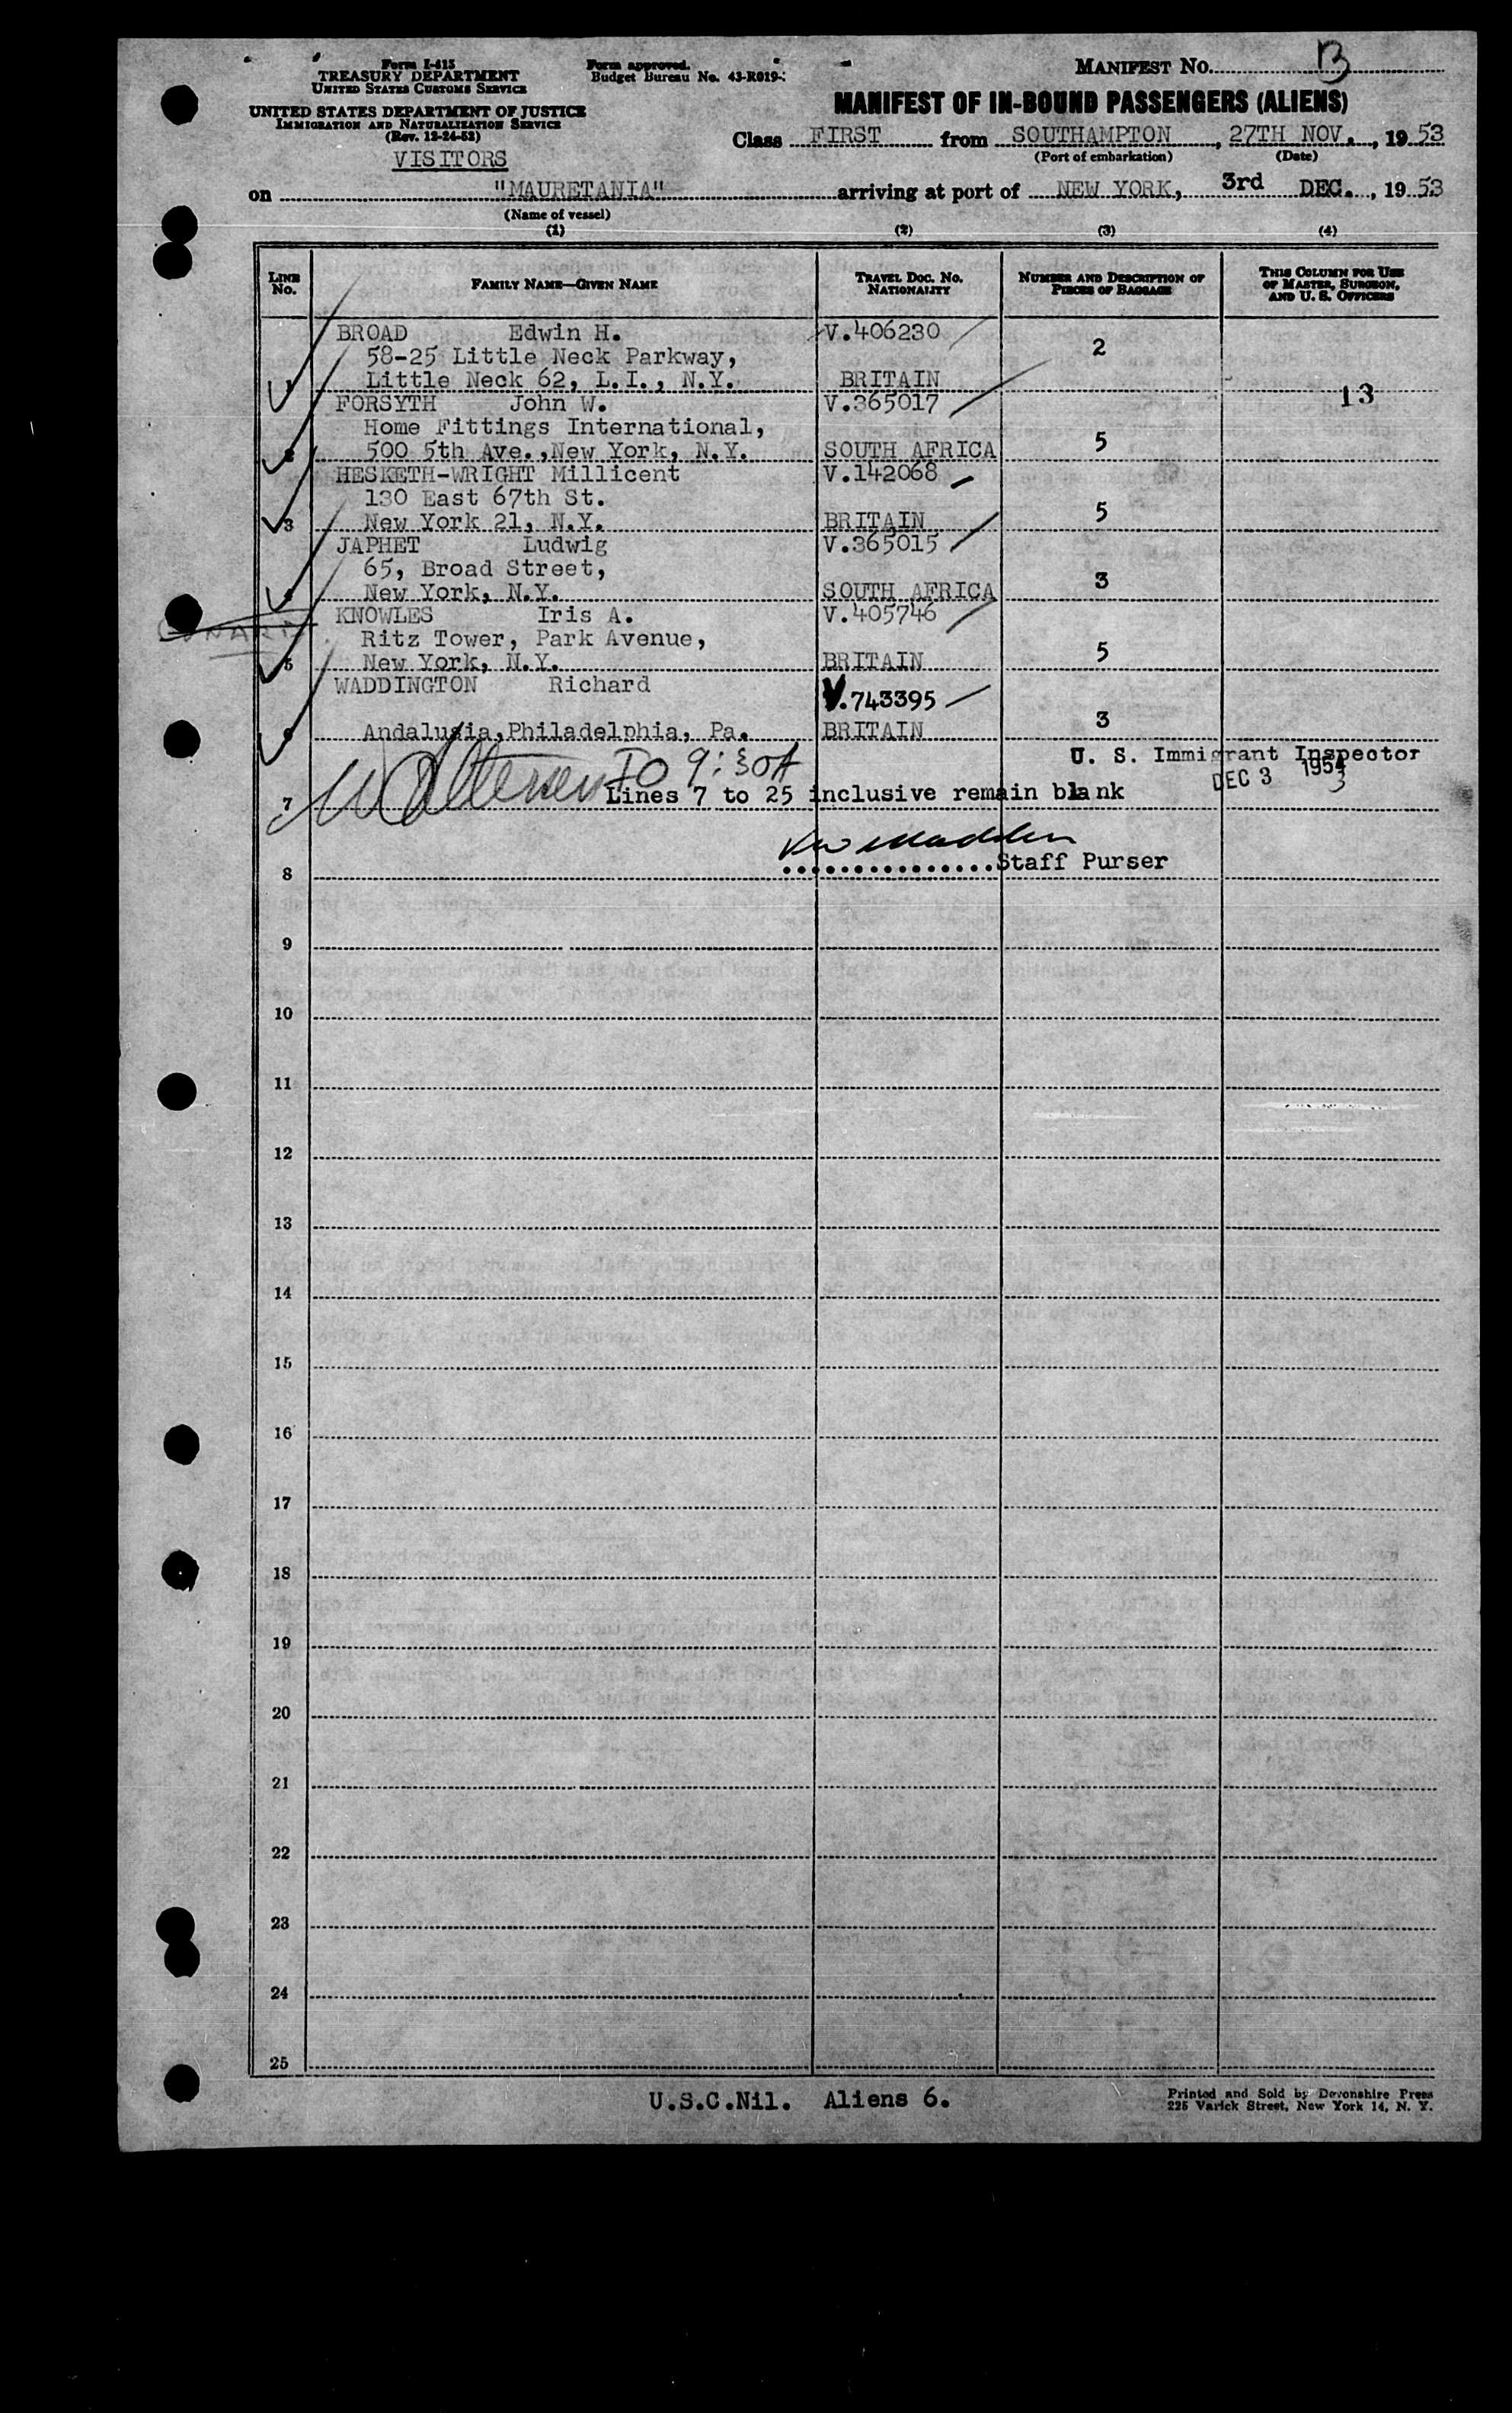 Form I-415
TREASURY DEPARTMENT
UNITED STATES CUSTOMS SERVICE
UNITED STATES DEPARTMENT OF JUSTICE
IMMIGRATION AND NATURALIZATION SERVICE
(Rev. 12-24-52)
VISITORS
Form approved.
Budget Bureau No. 43-R019-
MANIFEST NO. B
MANIFEST OF IN-BOUND PASSENGERS (ALIENS)
Class FIRST from SOUTHAMPTON, 27TH NOV., 1953
(Port of embarkation) (Date)
on "MAURETANIA" arriving at port of NEW YORK, 3rd DEC., 1953
(Name of vessel)
(1) (2) (3) (4)
LINE NO. FAMILY NAME—GIVEN NAME TRAVEL DOC. NO. NATIONALITY NUMBER AND DESCRIPTION OF PIECES OF BAGGAGE THIS COLUMN FOR USE OF MASTER, SURGEON, AND U. S. OFFICERS
BROAD Edwin H. V.406230
58-25 Little Neck Parkway, 2
1 Little Neck 62, L.I., N.Y. BRITAIN
FORSYTH John W. V.365017 13
Home Fittings International,
2 500 5th Ave.,New York, N.Y. SOUTH AFRICA 5
HESKETH-WRIGHT Millicent V.142068
130 East 67th St.
3 New York 21, N.Y. BRITAIN 5
JAPHET Ludwig V.365015
65, Broad Street,
4 New York, N.Y. SOUTH AFRICA 3
CUNARD
KNOWLES Iris A. V.405746
Ritz Tower, Park Avenue,
5 New York, N.Y. BRITAIN 5
WADDINGTON Richard V.743395
6 Andalusia,Philadelphia, Pa. BRITAIN 3
IO 9:30A U. S. Immigrant Inspector
DEC 3 1954 3
7 Lines 7 to 25 inclusive remain blank
Madden
8 ...............Staff Purser
9
10
11
12
13
14
15
16
17
18
19
20
21
22
23
24
25
U.S.C.Nil. Aliens 6.
Printed and Sold by Devonshire Press
225 Varick Street, New York 14, N. Y.